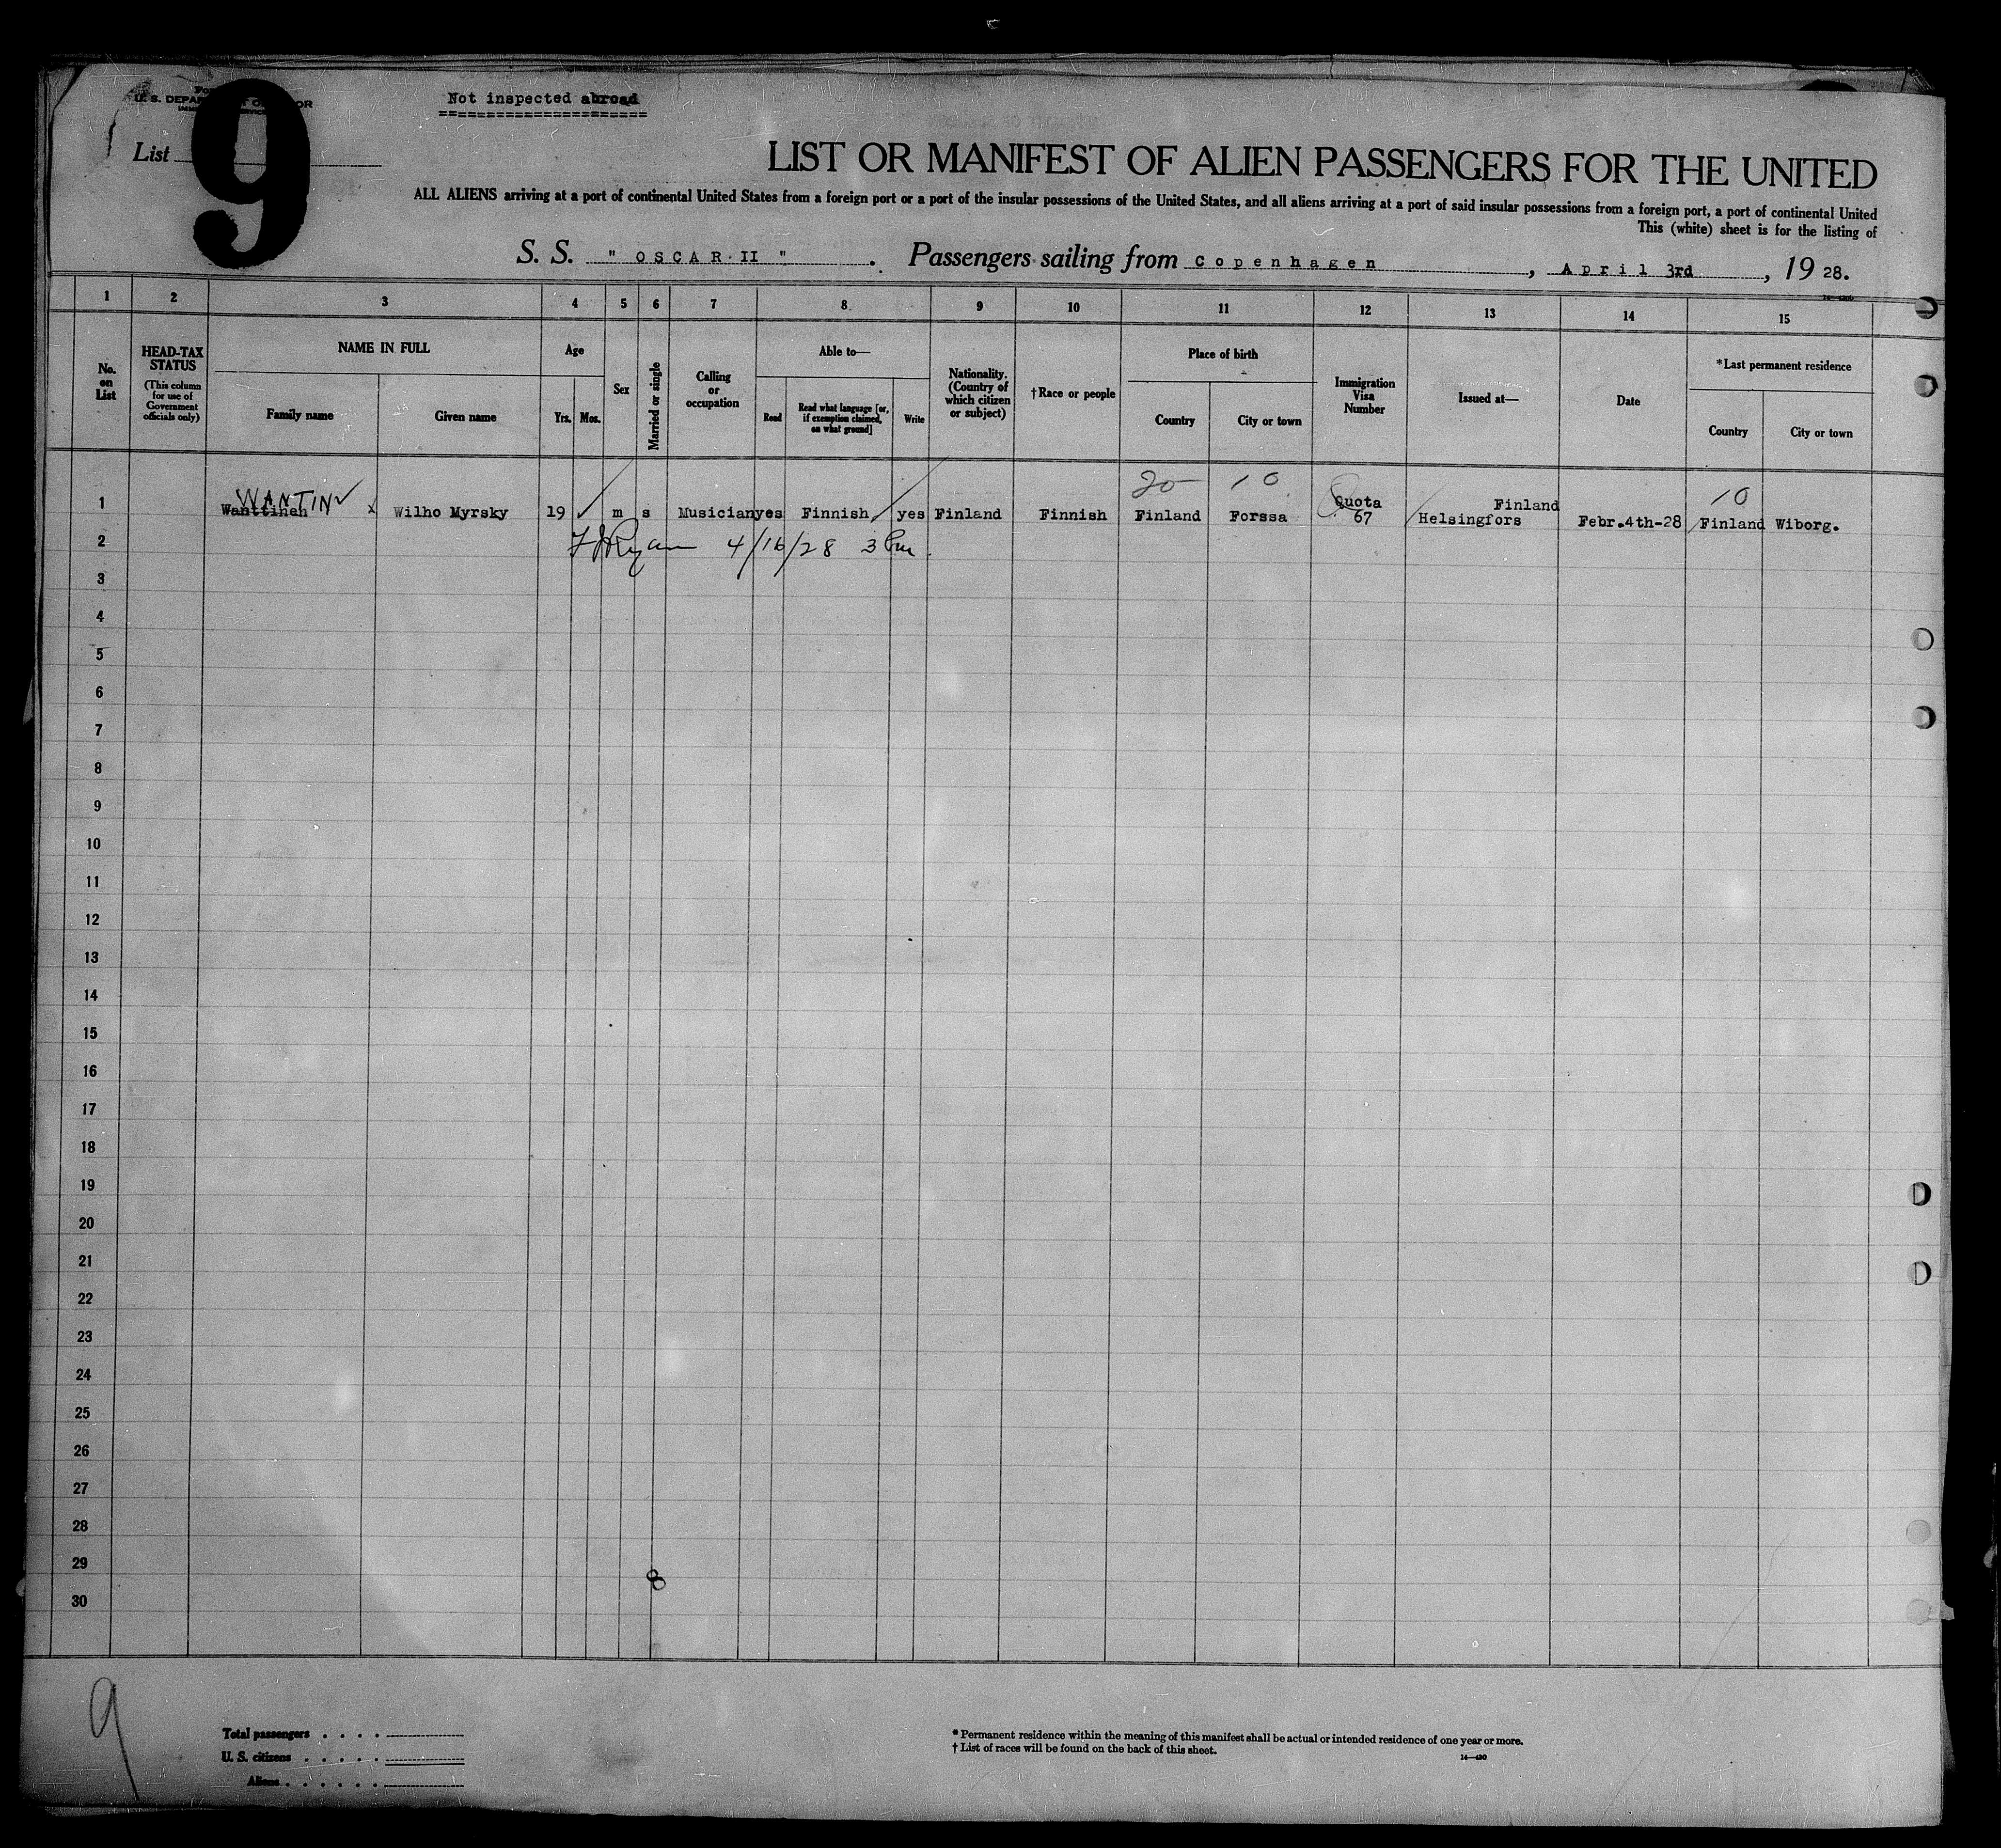 Not inspected abroad
9
List
LIST OR MANIFEST OF ALIEN PASSENGERS FOR THE UNITED
ALL ALIENS arriving at a port of continental United States from a foreign port or a port of the insular possessions of the United States, and all aliens arriving at a port of said insular possessions from a foreign port, a port of continental United
This (white) sheet is for the listing of
S. S. " OSCAR II ". Passengers sailing from Copenhagen, April 3rd, 1928.
1 2 3 4 5 6 7 8 9 10 11 12 13 14 15
No. on List
HEAD-TAX STATUS
(This column for use of Government officials only)
NAME IN FULL
Family name
Given name
Age
Yrs.
Mos.
Sex
Married or single
Calling or occupation
Able to—
Read
Read what language [or, if exemption claimed, on what ground]
Write
Nationality. (Country of which citizen or subject)
†Race or people
Place of birth
Country
City or town
Immigration Visa Number
Issued at—
Date
*Last permanent residence
Country
City or town
WANTIN 20 10 10
1 Wanttinen x Wilho Myrsky 19 m s Musician yes Finnish yes Finland Finnish Finland Forssa Quota 67 Finland Helsingfors Febr.4th-28 Finland Wiborg.
2 4/16/28 3 Pm.
3
4
5
6
7
8
9
10
11
12
13
14
15
16
17
18
19
20
21
22
23
24
25
26
27
28
29
30
8
9
Total passengers
U. S. citizens
Aliens
* Permanent residence within the meaning of this manifest shall be actual or intended residence of one year or more.
† List of races will be found on the back of this sheet.